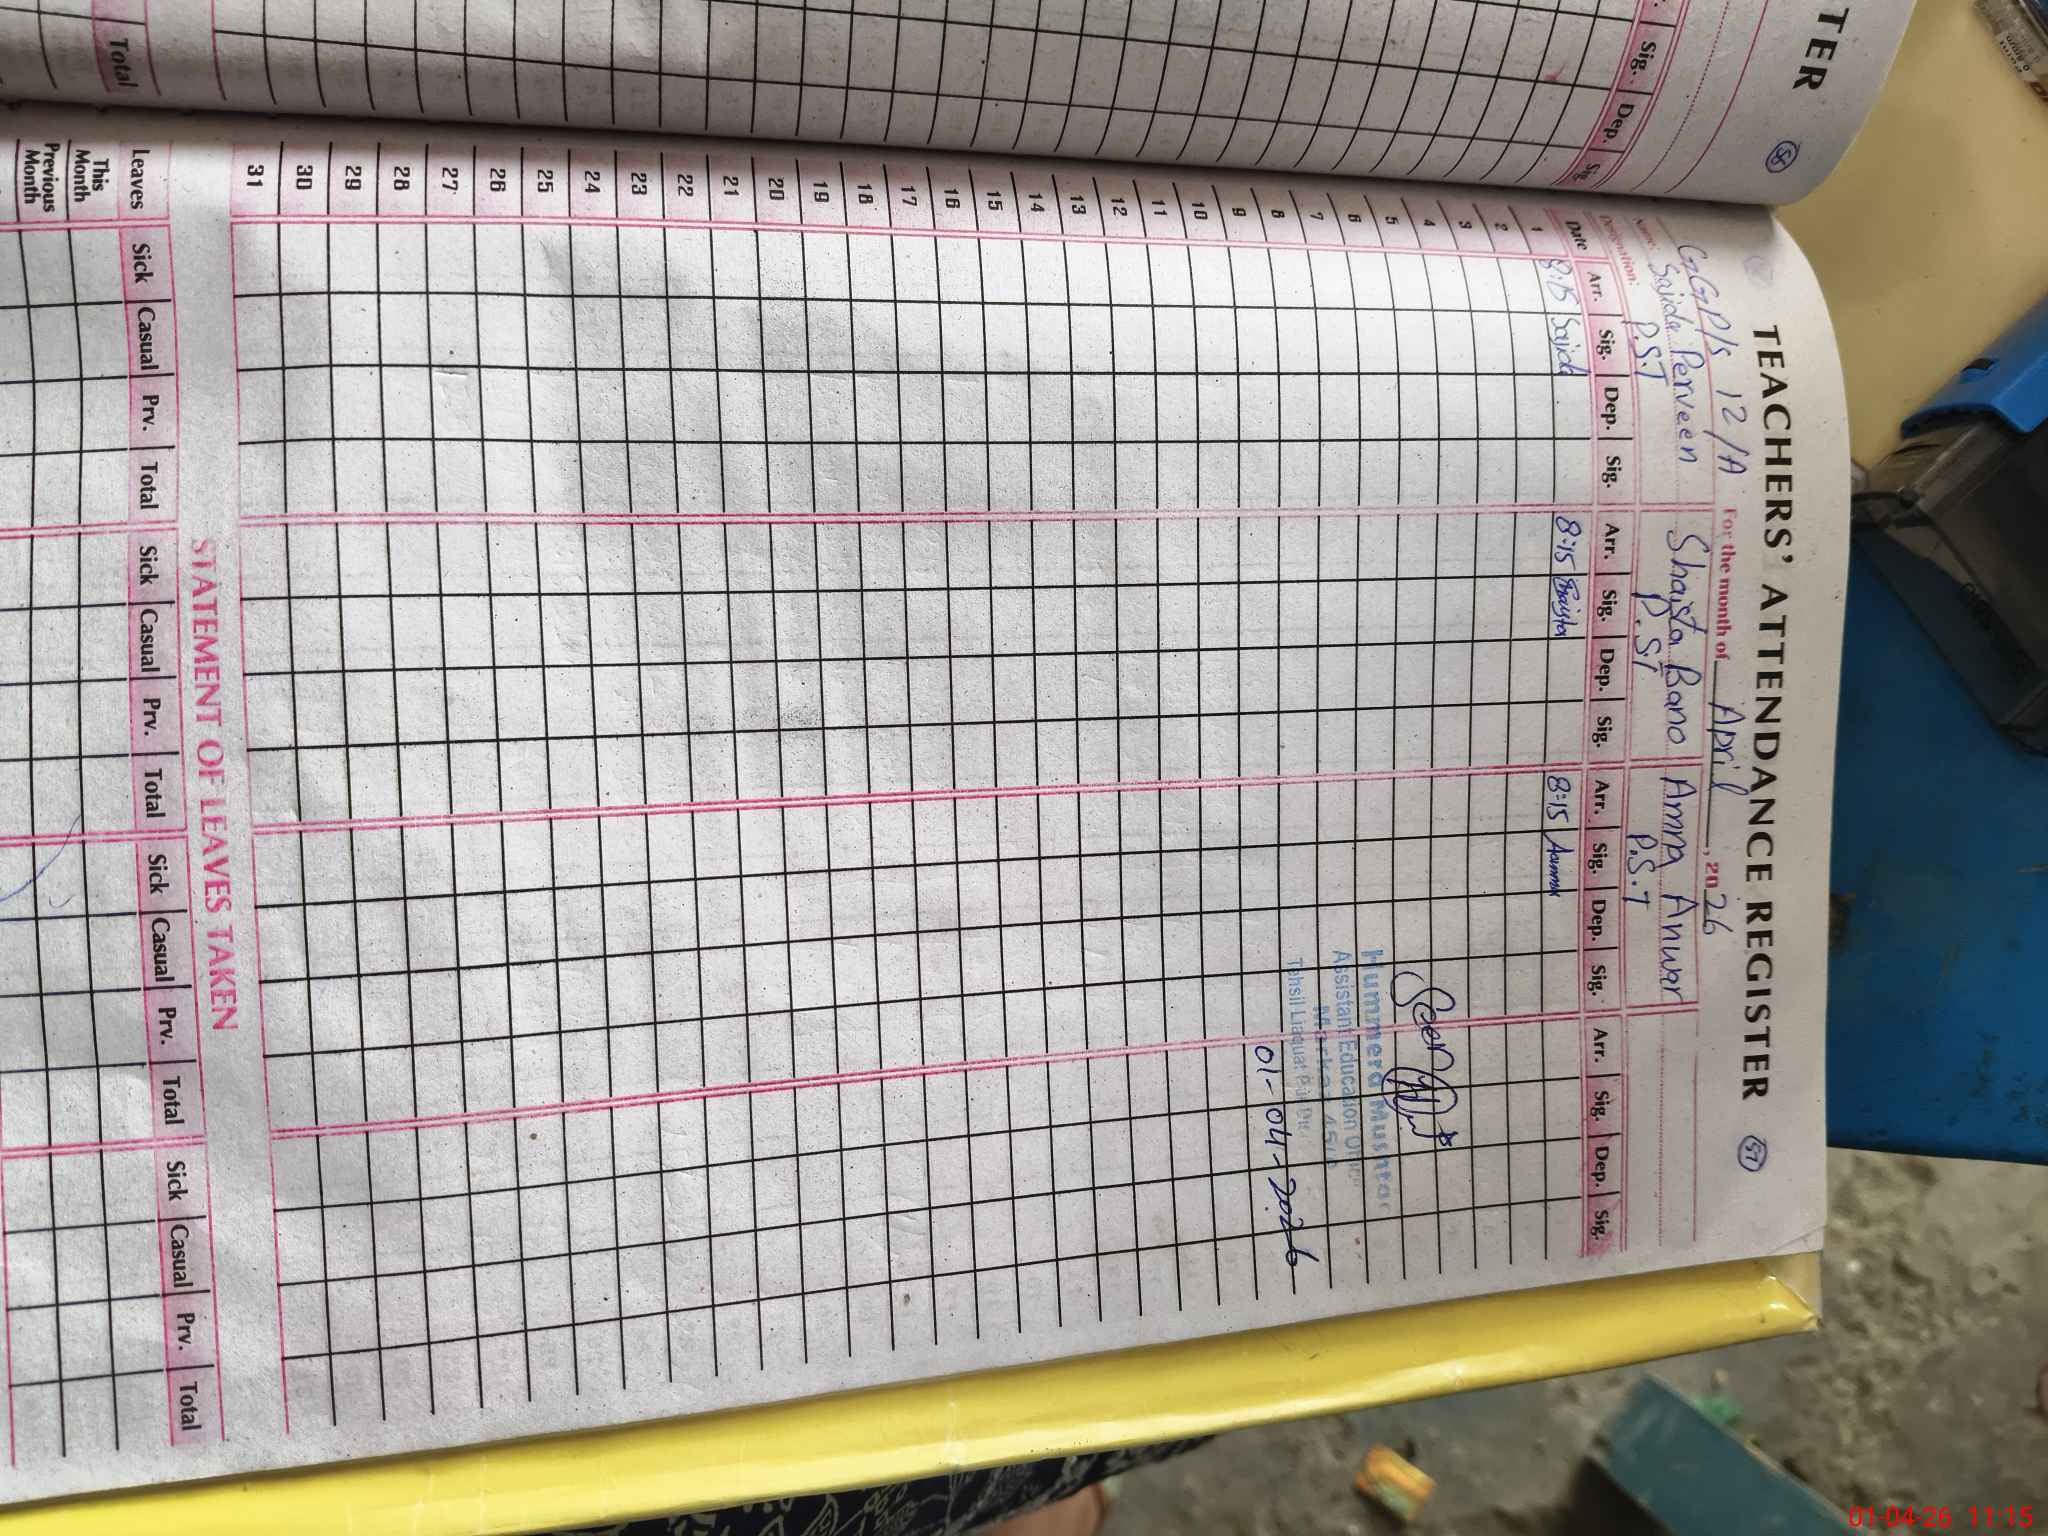 TER
58
Sig. Dep. Sig.
Total
TEACHERS' ATTENDANCE REGISTER 57
GGP/s 12/A For the month of April, 2026
Name: Sajida Perveen Shaista Bano Amna Anwar
Designation: P.S.T P.ST P.S.T
Date Arr. Sig. Dep. Sig. Arr. Sig. Dep. Sig. Arr. Sig. Dep. Sig. Arr. Sig. Dep. Sig.
1 8:15 Sajida 8:15 Shaista 8:15 Aamna
2
3
4
5
6
7
8
9
10
11
12
13
14
15
16
17
18
19
20
21
22
23
24
25
26
27
28
29
30
31
Seen
Hummera Mushtaq
Assistant Education Officer
Markaz
Tehsil Liaquat Pur
01-04-2026
STATEMENT OF LEAVES TAKEN
Leaves Sick Casual Prv. Total Sick Casual Prv. Total Sick Casual Prv. Total Sick Casual Prv. Total
This Month
Previous Month
01-04-26 11:15